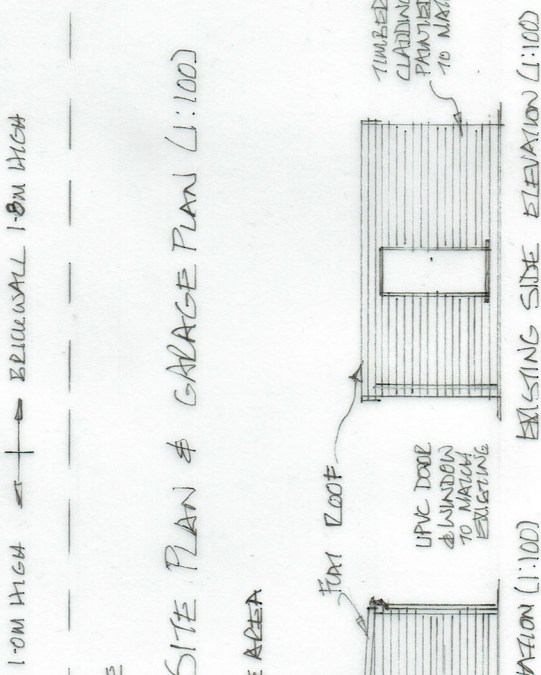 1.0M HIGH
BRICKWALL 1.8M HIGH
SITE PLAN & GARAGE PLAN (1:100)
AREA
FLAT ROOF
UPVC DOOR
& WINDOW
TO MATCH
EXISTING
TIMBER
CLADDING
PAINTED
TO
EXISTING SIDE ELEVATION (1:100)
(1:100)